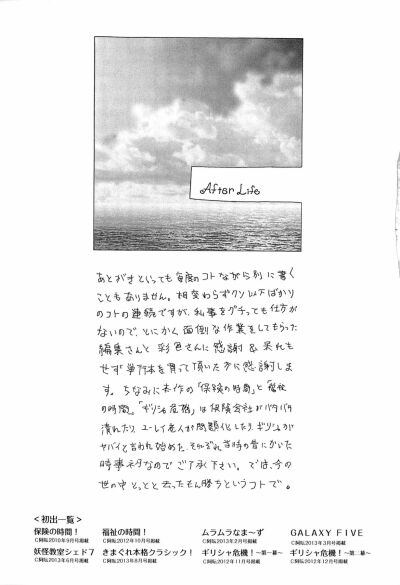 After Life
あとがきといっても毎度のコトながら別に書く
こともありません。相変わらずクソ以下ばかり
のコトの連続ですが、私事をグチっても仕方が
ないので、とにかく面倒な作業をしてもらった
編集さんと彩色さんに感謝&呆れも
せず単行本を買って頂いた方に感謝しま
す。ちなみに本作の「保険の時間」と「福祉
の時間」「ギリシャ危機」は保険会社がバタバタ
潰れたり、ユーレイ老人が問題化したり、ギリシャが
ヤバイと言われ始めた、それぞれ当時の昔にかいた
時事ネタなのでご了承下さい。では、今の
世の中とっとと去ったもん勝ちというコトで。
<初出一覧>
保険の時間! 福祉の時間! ムラムラなま〜ず GALAXY FIVE
C㈱転2010年9月号掲載 C㈱転2012年10月号掲載 C㈱転2013年2月号掲載 C㈱転2013年3月号掲載
妖怪教室シェド7 きまぐれ本格クラシック! ギリシャ危機!〜第一幕〜 ギリシャ危機!〜第二幕〜
C㈱転2013年6月号掲載 C㈱転2013年8月号掲載 C㈱転2012年11月号掲載 C㈱転2012年12月号掲載